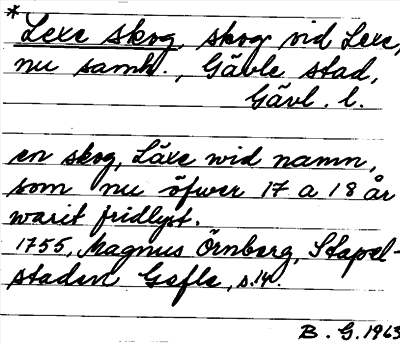 *Lexe skog, skog vid Lexe,
nu samh., Gävle stad,
Gävl. l.
en skog, Läxe wid namn,
som nu öfwer 17 a 18 år
warit fridlyst.
1755, Magnus Örnberg, Stapel-
staden Gefle, s.14.
B. G. 1963